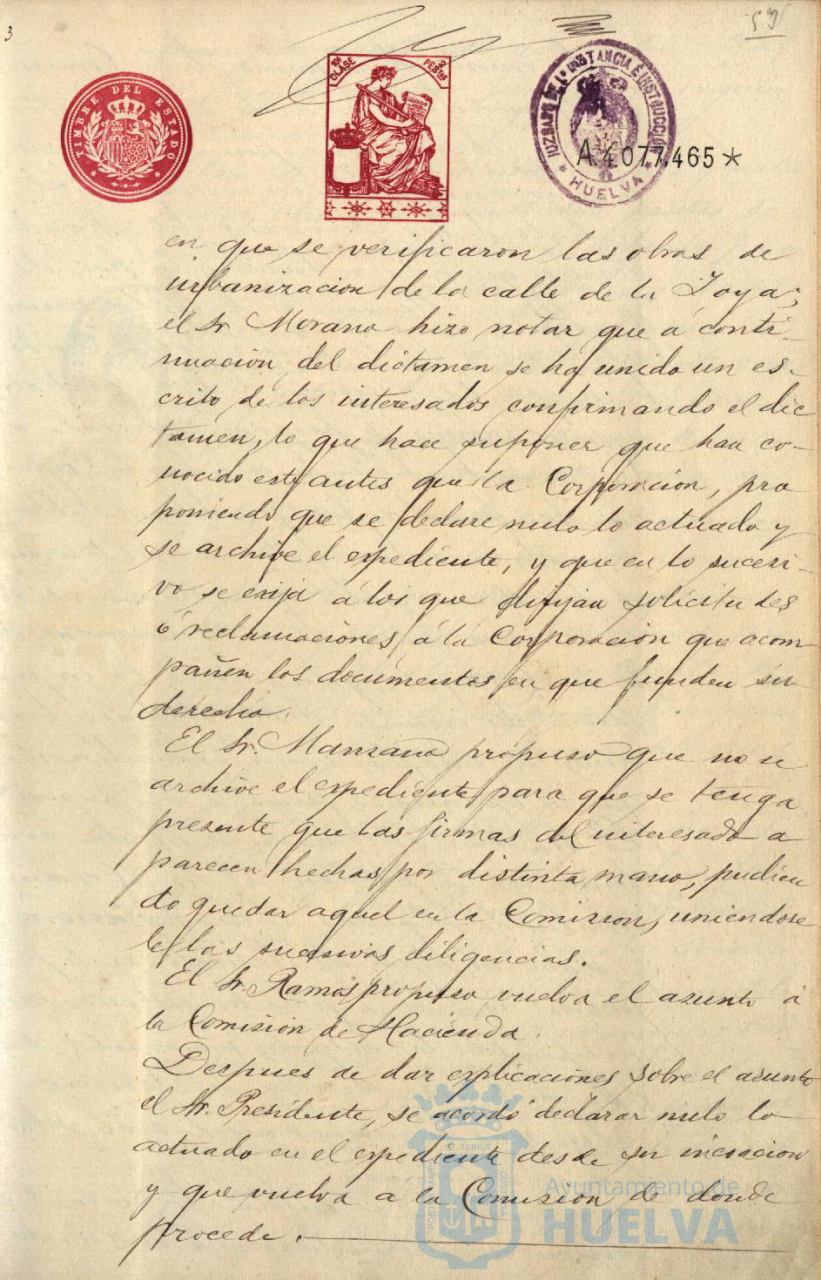 3
59
TIMBRE DEL ESTADO
CLASE
PESTAS
JUZGADO DE 1ª INSTANCIA É INSTRUCCIÓN
HUELVA
A4.077.465*
en que se verificaron las obras de
urbanizacion de la calle de la Joya;
el Sr Morano hizo notar que á conti-
nuación del dictamen se ha unido un es-
crito de los interesados confirmando el dic
tamen, lo que hace suponer que han co-
nocido este antes que la Corporación, pro
poniendo que se declare nulo lo actuado y
se archive el expediente, y que en lo sucesi-
vo se exija á los que dirijan solicitudes
ó reclamaciones á la Corporación que acom
pañen los documentos en que funden su
derecho.
El Sr. Manzano propuso que no se
archive el expediente para que se tenga
presente que las firmas del interesado a
parecen hechas por distinta mano, pudien
do quedar aquel en la Comision, uniendose
le las sucesivas diligencias.
El Sr. Ramos propuso vuelva el asunto á
la Comisión de Hacienda.
Despues de dar explicaciones sobre el asunto
el Sr. Presidente, se acordó declarar nulo lo
actuado en el expediente desde su incoacion
y que vuelva a la Comision de donde
procede.
Ayuntamiento de
HUELVA